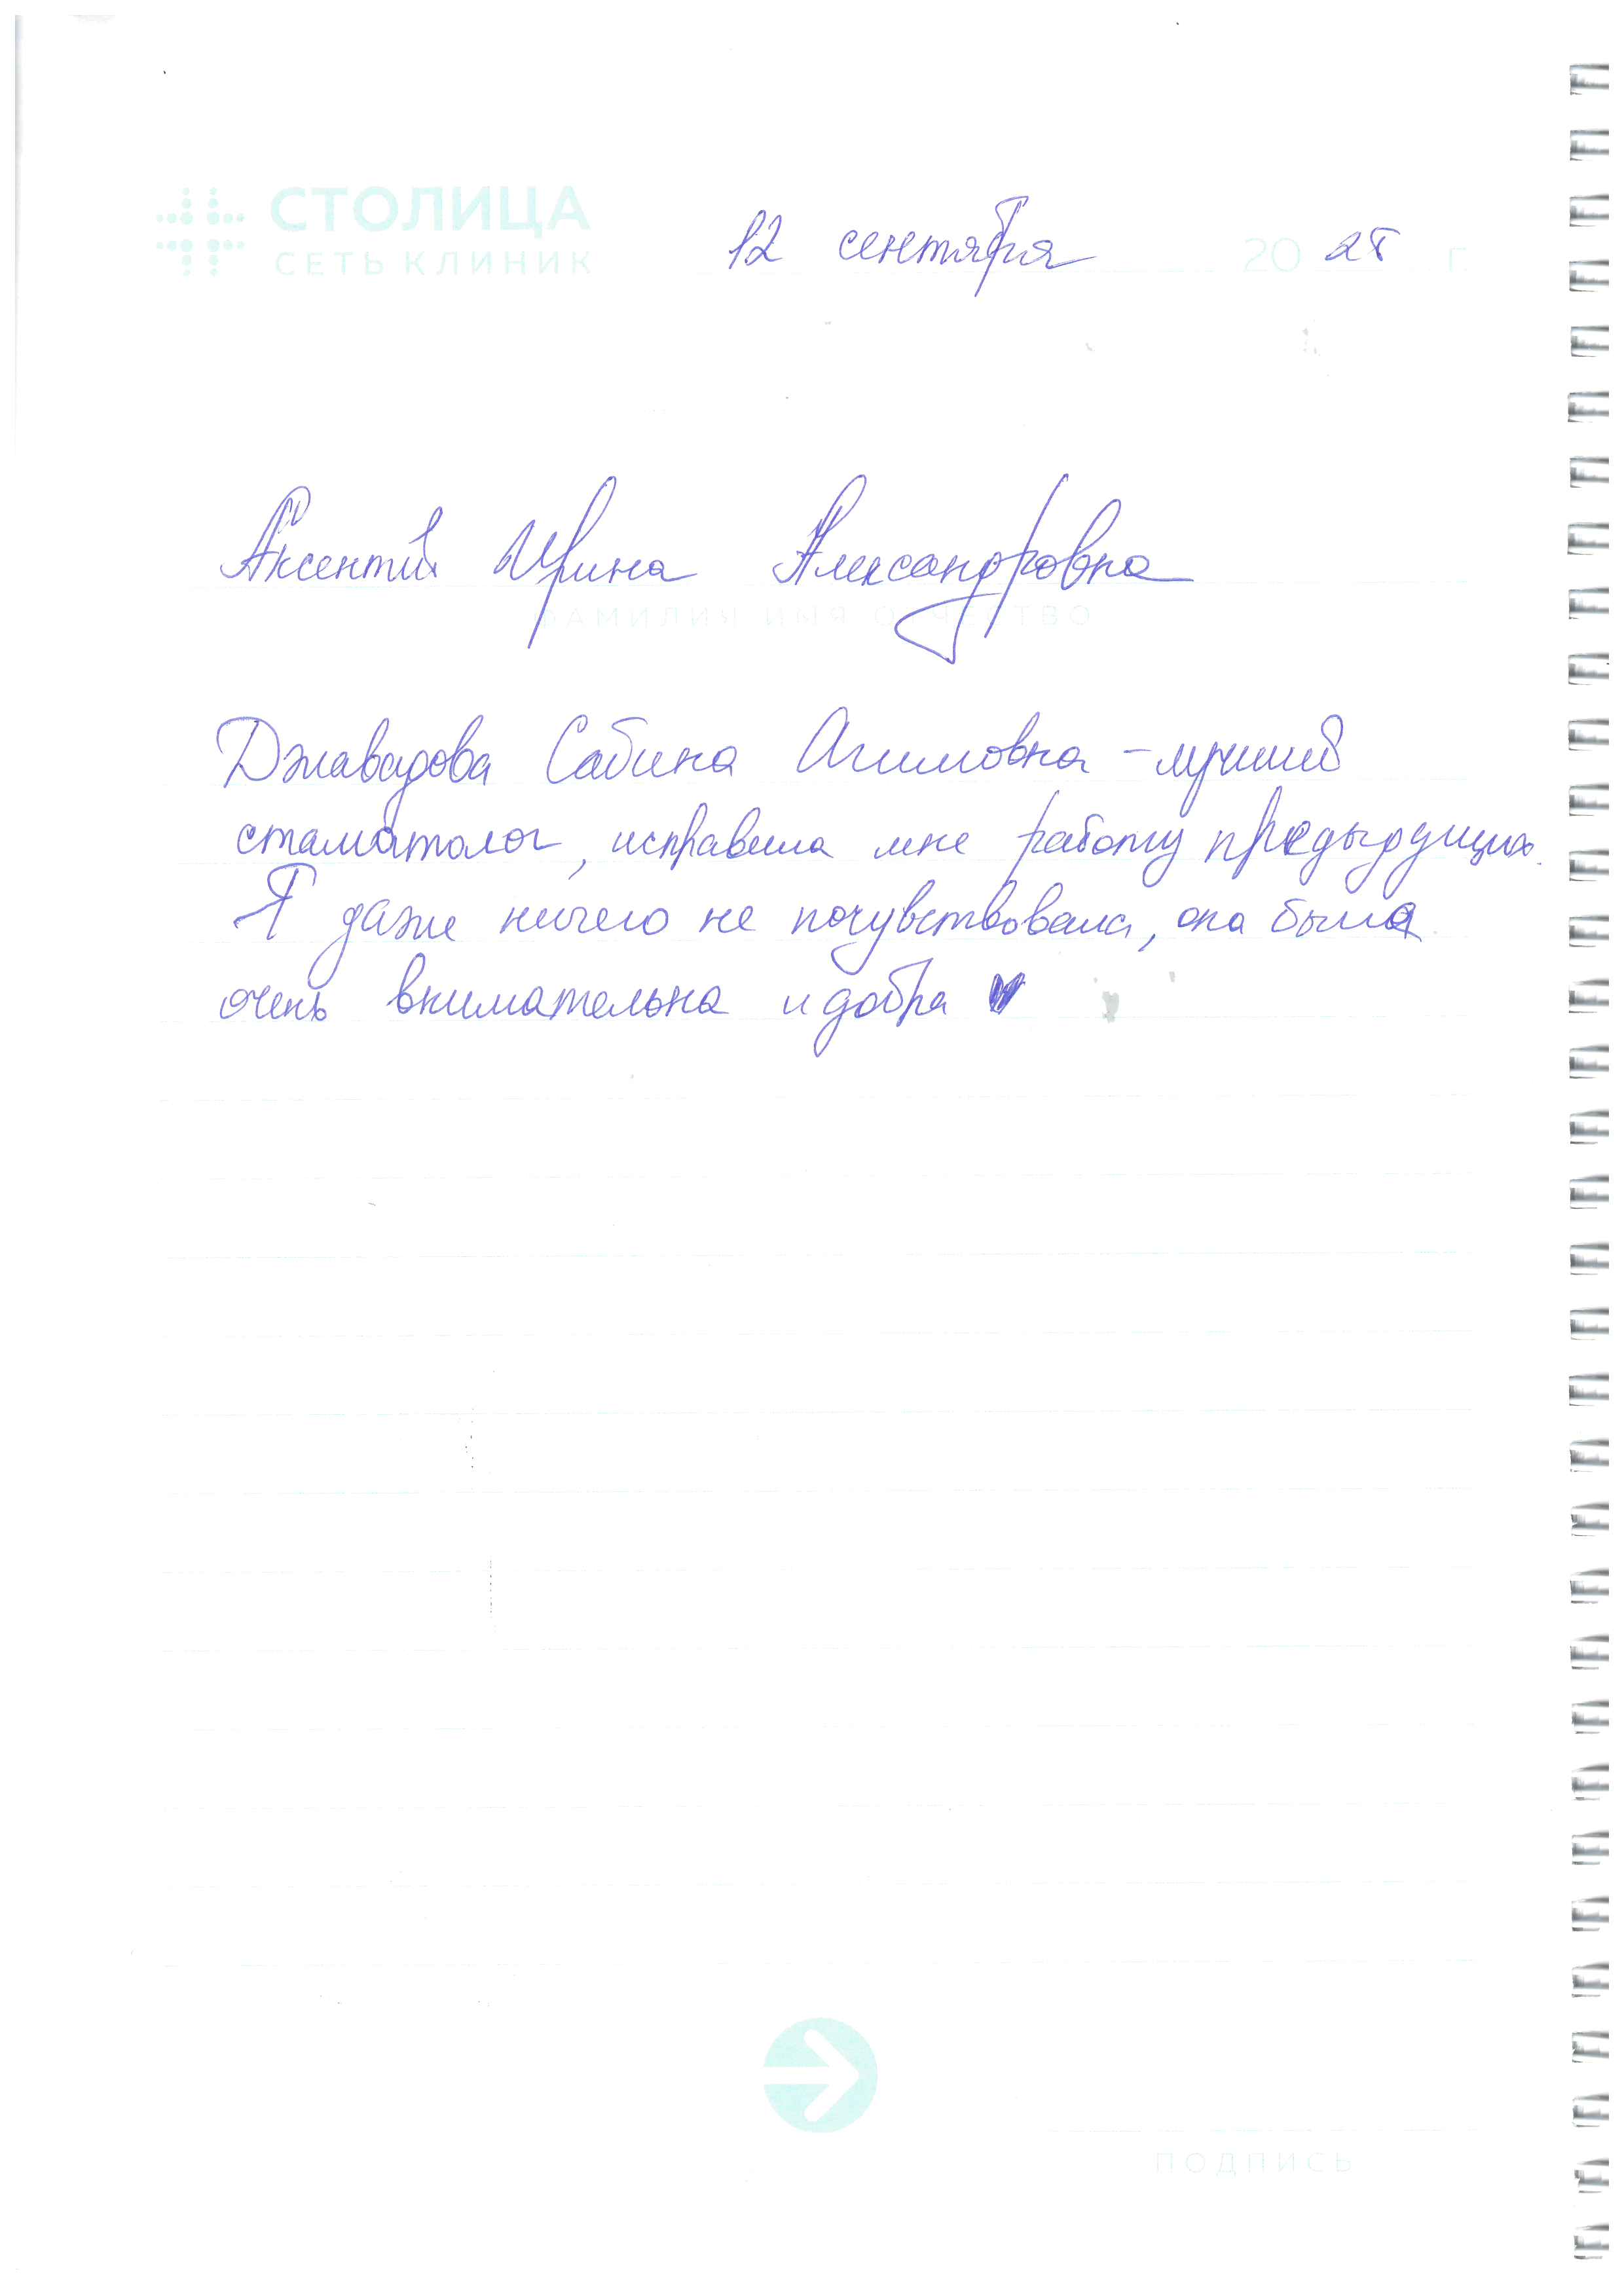 СТОЛИЦА
СЕТЬ КЛИНИК
12 сентября 2025 г.
Аксентий Ирина Александровна
ФАМИЛИЯ ИМЯ ОТЧЕСТВО
Джавадова Сабина Агимовна - лучший
стаматолог, исправила мне работу предыдущих.
Я даже ничего не почувствовала, она была
очень внимательна и добра ♥
ПОДПИСЬ